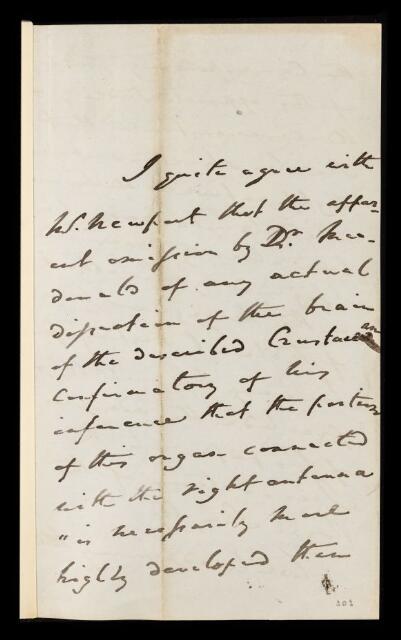 I quite agree with
Mr. Newport that the appar-
ent omission by Dr. Mac-
donald of any actual
dissection of the brain
of the described Crustacean
confirmatory of his
inference that the portion
of this organ connected
with the right antenna
"is necessarily more
highly developed than